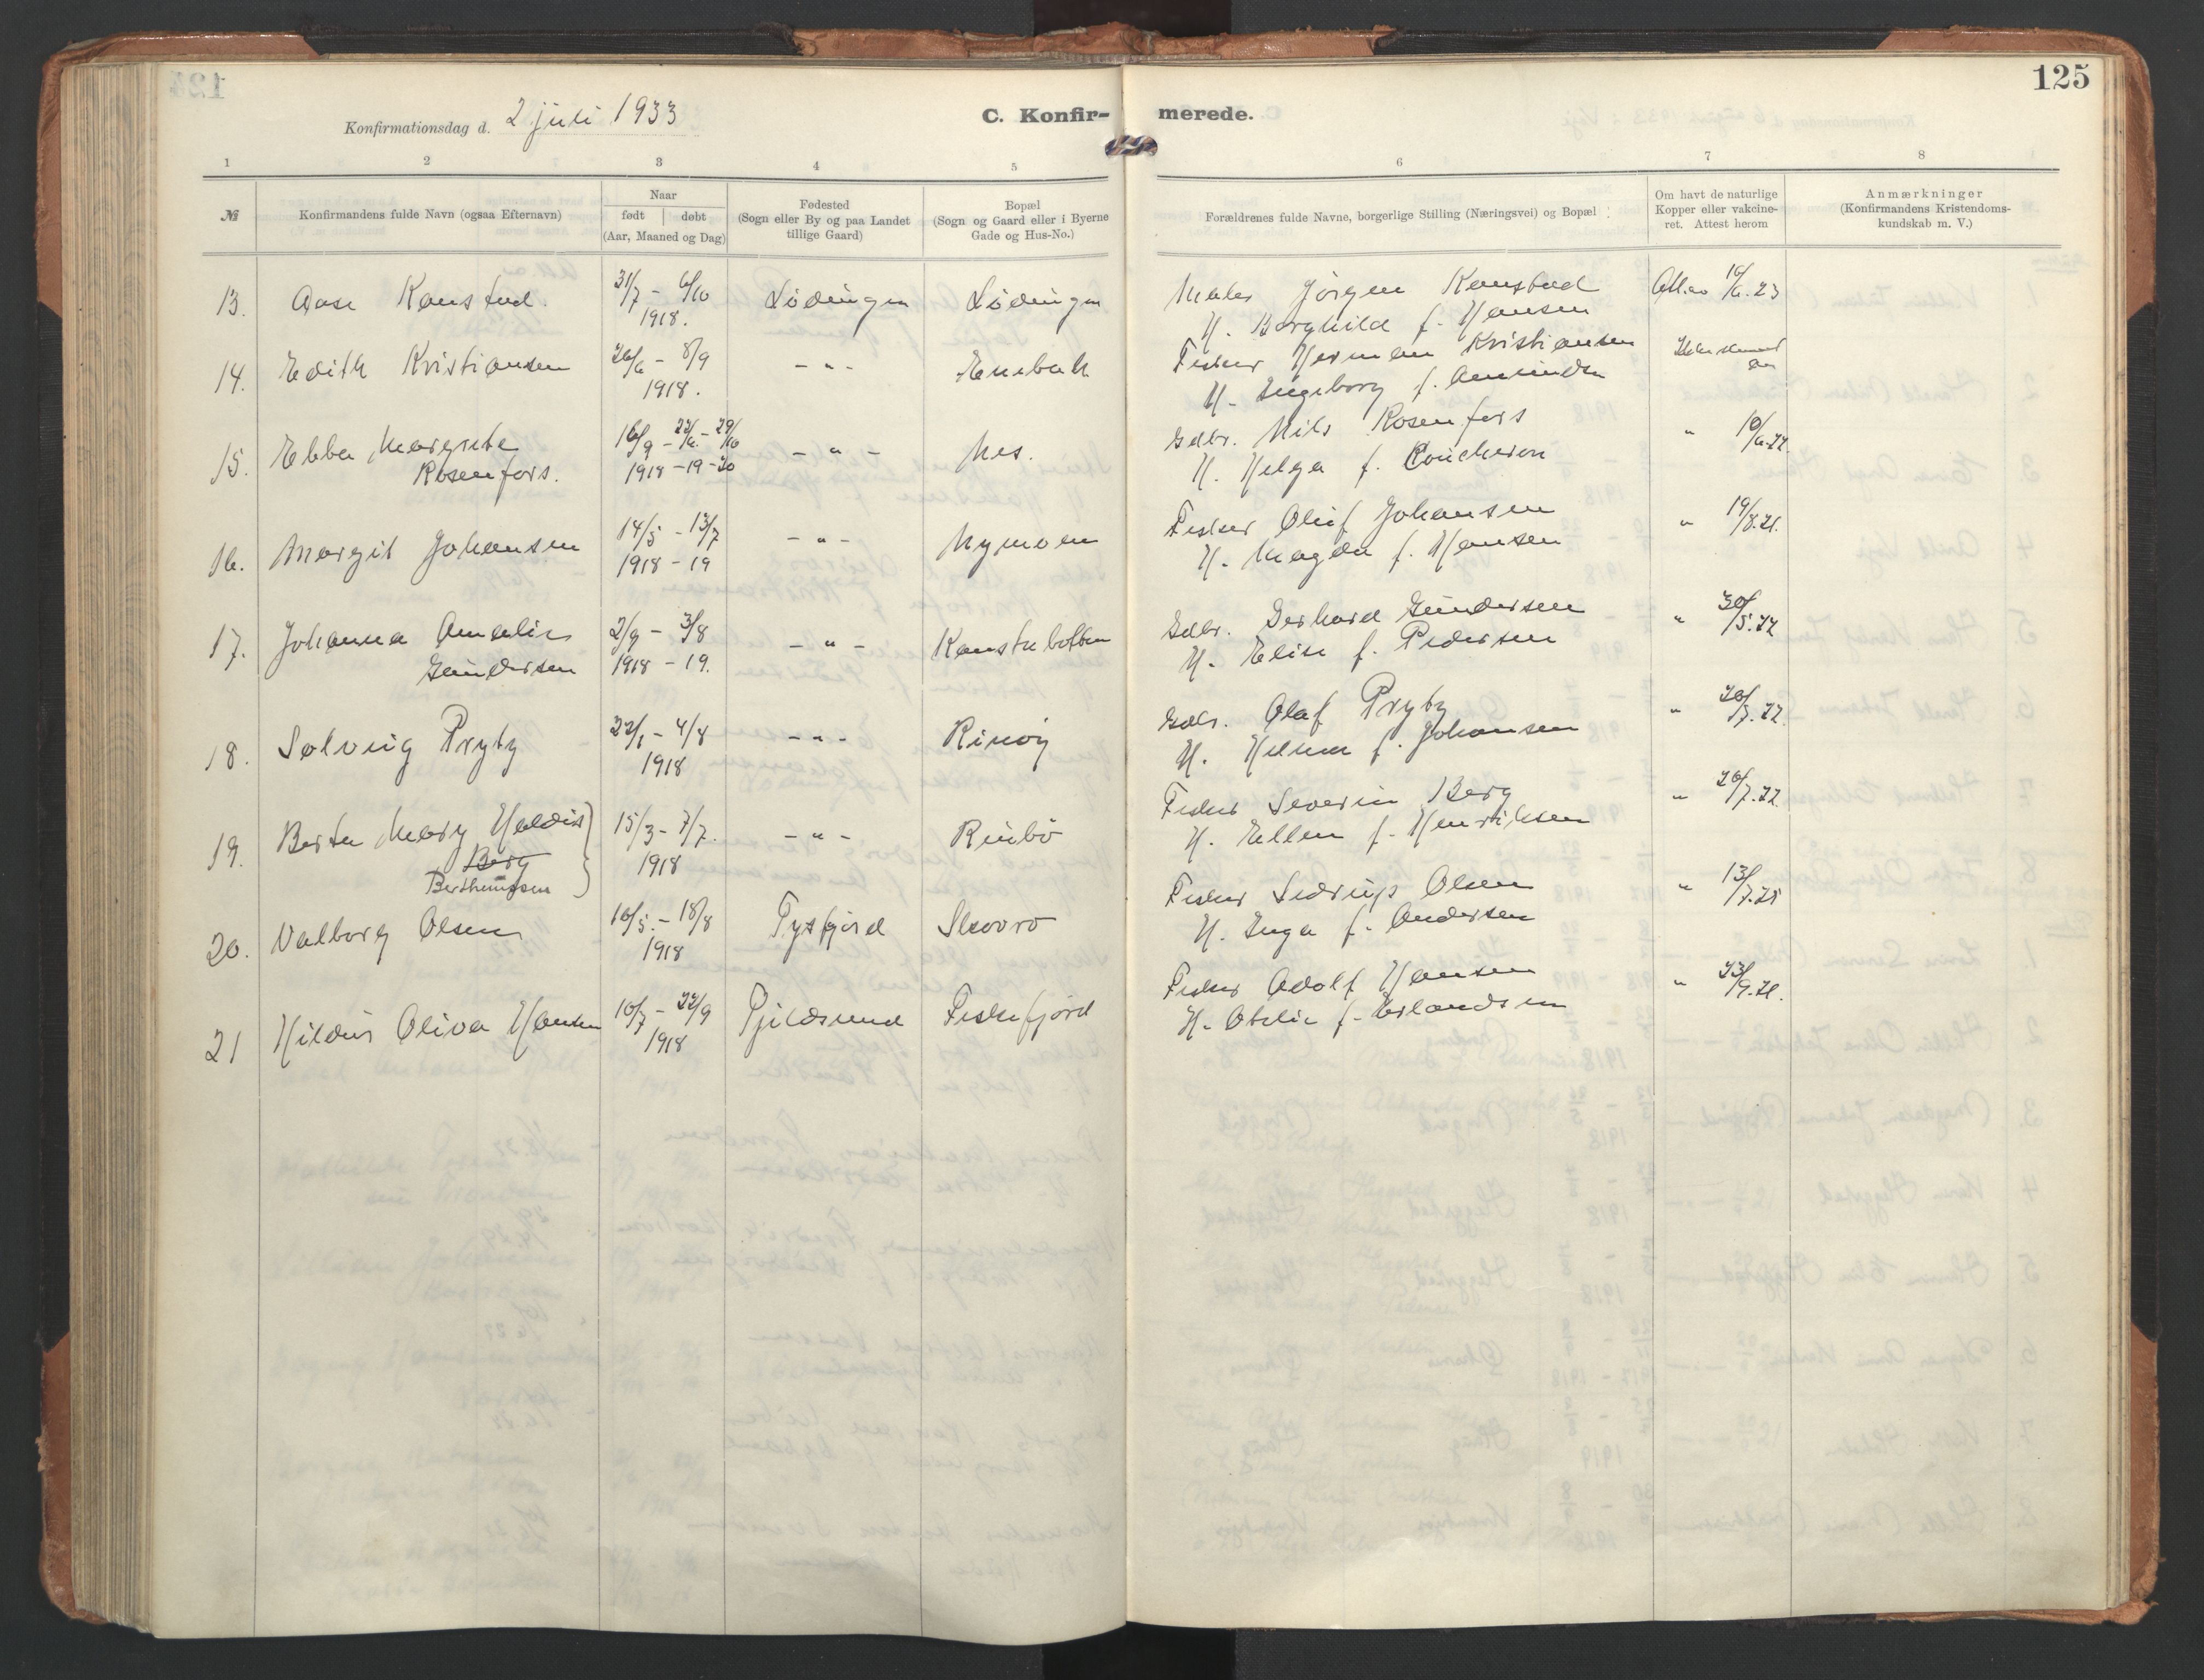 125
Konfirmationsdag d. 2 juli 1933
C. Konfir- merede.
1 2 3 4 5 6 7 8
№
Konfirmandens fulde Navn (ogsaa Efternavn)
Naar
født | døbt
(Aar, Maaned og Dag)
Fødested
(Sogn eller By og paa Landet
tillige Gaard)
Bopæl
(Sogn og Gaard eller i Byerne
Gade og Hus-No.)
Forældrenes fulde Navne, borgerlige Stilling (Næringsvei) og Bopæl
Om havt de naturlige
Kopper eller vakcine-
ret. Attest herom
Anmærkninger
(Konfirmandens Kristendoms-
kundskab m. V.)
13. Aase Kanstad. 31/7 - 6/10 Lødingen Lødingen Maler Jørgen Kanstad Att. av 16/6.23
1918. H. Borghild f. Hansen
14. Edith Kristiansen 26/6 - 8/9 - " - Enebak Fisker Herman Kristiansen
1918. H. Ingeborg f. Amundsen
15. Ebba Margrete 16/9 - 22/6 - 29/10 - " - Nes. Gdbr. Nils Rosenfors " 10/6.22
Rosenfors. 1918 - 19 - 20 H. Helga f. Coucheron
16. Margit Johansen 14/5 - 13/7 - " - Nymoen Fisker Oluf Johansen " 19/8.21.
1918 - 19 H. Magda f. Hansen
17. Johanna Amalie 2/9 - 3/8 - " - Kanstabotten Gdbr. Gerhard Gundersen " 30/5.22
Gundersen 1918 - 19. H. Elise f. Pedersen
18. Solveig Prytz 22/1 - 4/8 - " - Rinøy Gdbr. Olaf Prytz " 20/7.22.
1918 H. Helma f. Johansen
19. Berta Mary Haldis 15/3 - 7/7. - " - Rinbø Fisker Severin Berg " 20/7.22
Berg 1918 H. Ellen f. Henriksen
Bertheussen
20. Valborg Olsen 16/5. - 18/8 Tysfjord Skovro Fisker Sedrup Olsen " 13/7.25
1918 H. Inga f. Andersen
21 Hildur Oliva Hansen 10/7 - 22/9 Tjeldsund Fiskefjord Fisker Adolf Hansen " 23/9.21.
1918 H. Otelie f. Erlandsen